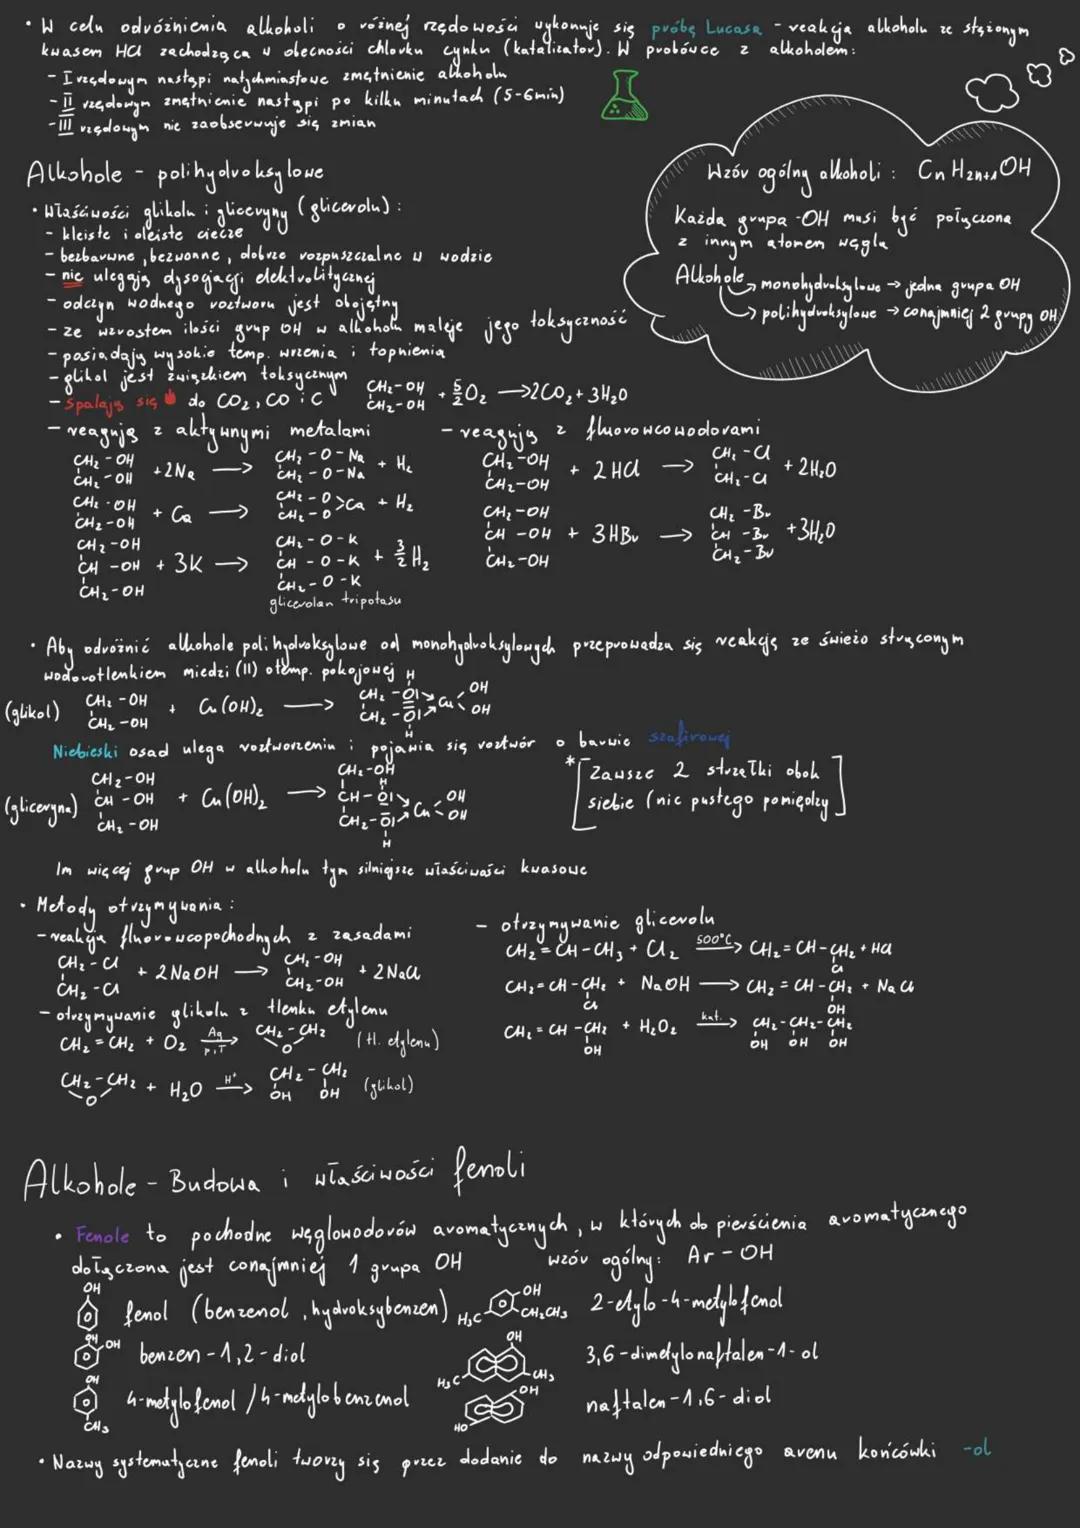 • W celu odróżnienia alkoholi o różnej rzędowości wykonuje się próbę Lucasa - reakcja alkoholu ze stężonym
kwasem HCl zachodząca w obecności chlorku cynku (katalizator). W probówce z alkoholem:
- I rzędowym nastąpi natychmiastowe zmętnienie alkoholu
- II rzędowym zmętnienie nastąpi po kilku minutach (5-6min)
- III rzędowym nie zaobserwuje się zmian
Wzór ogólny alkoholi: CnH2n+1OH
Każda grupa -OH musi być połączona
z innym atomem węgla
Alkohole
→ monohydroksylowe → jedna grupa OH
→ polihydroksylowe → conajmniej 2 grupy OH
Alkohole - polihydroksylowe
• Właściwości glikolu i gliceryny (glicerolu):
- kleiste i oleiste ciecze
- bezbarwne, bezwonne, dobrze rozpuszczalne w wodzie
- nie ulegają dysocjacji elektrolitycznej
- odczyn wodnego roztworu jest obojętny
- ze wzrostem ilości grup OH w alkoholu maleje jego toksyczność
- posiadają wysokie temp. wrzenia i topnienia
- glikol jest związkiem toksycznym
- Spalają się do CO2, CO i C
CH2-OH
CH2-OH + 5/2 O2 → 2CO2 + 3H2O
- reagują z aktywnymi metalami
CH2-OH
CH2-OH + 2Na → CH2-O-Na
CH2-O-Na + H2
CH2-OH
CH2-OH + Ca → CH2-O
CH2-O >Ca + H2
CH2-OH
CH-OH + 3K →
CH2-OH
CH2-O-K
CH-O-K + 3/2 H2
CH2-O-K
glicerolan tripotasu
- reagują z fluorowcowodorami
CH2-OH
CH2-OH + 2HCl → CH2-Cl
CH2-Cl + 2H2O
CH2-OH
CH-OH + 3HBr →
CH2-OH
CH2-Br
CH-Br + 3H2O
CH2-Br
• Aby odróżnić alkohole polihydroksylowe od monohydroksylowych przeprowadza się reakcję ze świeżo strąconym
wodorotlenkiem miedzi (II) o temp. pokojowej
(glikol) CH2-OH
CH2-OH + Cu(OH)2 →
H
CH2-O|
CH2-O| Cu OH
OH
H
Niebieski osad ulega roztworzeniu i pojawia się roztwór o barwie szafirowej
(gliceryna) CH2-OH
CH-OH + Cu(OH)2 →
CH2-OH
CH2-OH
H
CH-O|
CH2-O| Cu OH
OH
H
* [Zawsze 2 strzałki obok
siebie (nic pustego pomiędzy]
Im więcej grup OH w alkoholu tym silniejsze właściwości kwasowe
• Metody otrzymywania:
- reakcja fluorowcopochodnych z zasadami
CH2-Cl
CH2-Cl + 2NaOH → CH2-OH
CH2-OH + 2NaCl
- otrzymywanie glikolu z tlenku etylenu
CH2=CH2 + O2 Ag p,T → CH2-CH2
O (tl. etylenu)
CH2-CH2
O + H2O H+ → CH2-CH2
OH OH (glikol)
- otrzymywanie glicerolu
CH2=CH-CH3 + Cl2 500°C → CH2=CH-CH2 + HCl
Cl
CH2=CH-CH2 + NaOH → CH2=CH-CH2 + NaCl
Cl OH
CH2=CH-CH2 + H2O2 kat. → CH2-CH2-CH2
OH OH OH OH
Alkohole - Budowa i właściwości fenoli
• Fenole to pochodne węglowodorów aromatycznych, w których do pierścienia aromatycznego
dołączona jest conajmniej 1 grupa OH wzór ogólny: Ar-OH
OH
fenol (benzenol, hydroksybenzen)
H3C OH CH2CH3 2-etylo-4-metylofenol
OH OH benzen-1,2-diol
OH H3C CH3 3,6-dimetylonaftalen-1-ol
OH CH3 4-metylofenol / 4-metylobenzenol
OH HO naftalen-1,6-diol
• Nazwy systematyczne fenoli tworzy się przez dodanie do nazwy odpowiedniego arenu końcówki -ol